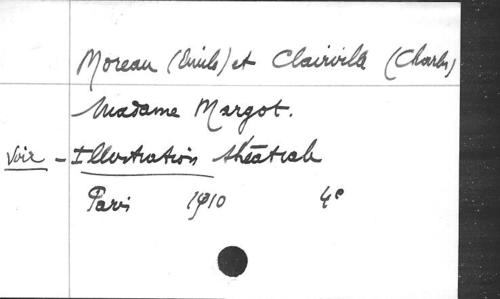 Moreau (Emile) et Clairville (Charles)
Madame Margot.
Voir - Illustration théâtrale
Paris 1910 4°